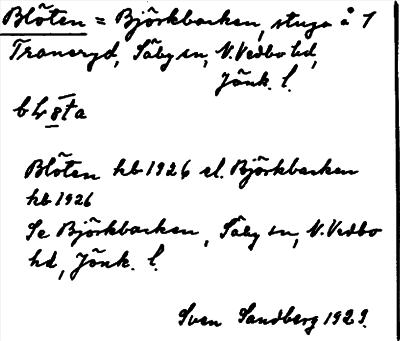 Blöten = Björkbacken, stuga å 1
Traneryd, Säby sn, N. Vedbo hd,
Jönk. l.
b Lr 8 Fa
Blöten hb 1926 el. Björkbacken
hb 1926
Se Björkbacken, Säby sn, N. Vedbo
hd, Jönk. l.
Sven Sandberg 1929.